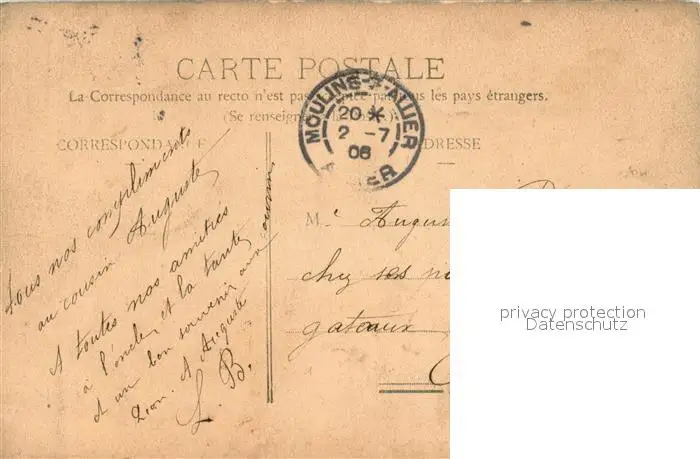 CARTE POSTALE
La Correspondance au recto n'est pas tous les pays étrangers.
(Se renseigner à la Poste).
CORRESPONDANCE
ADRESSE
MOULINS-S-ALLIER
20 *
2 -7
06
ALLIER
Tous nos compliments
au cousin Auguste
A toutes nos amitiés
à l'oncle et la tante
et un bon souvenir aux
Léon. A Auguste
L. B.
M.
chez ses
gateaux
privacy protection
Datenschutz